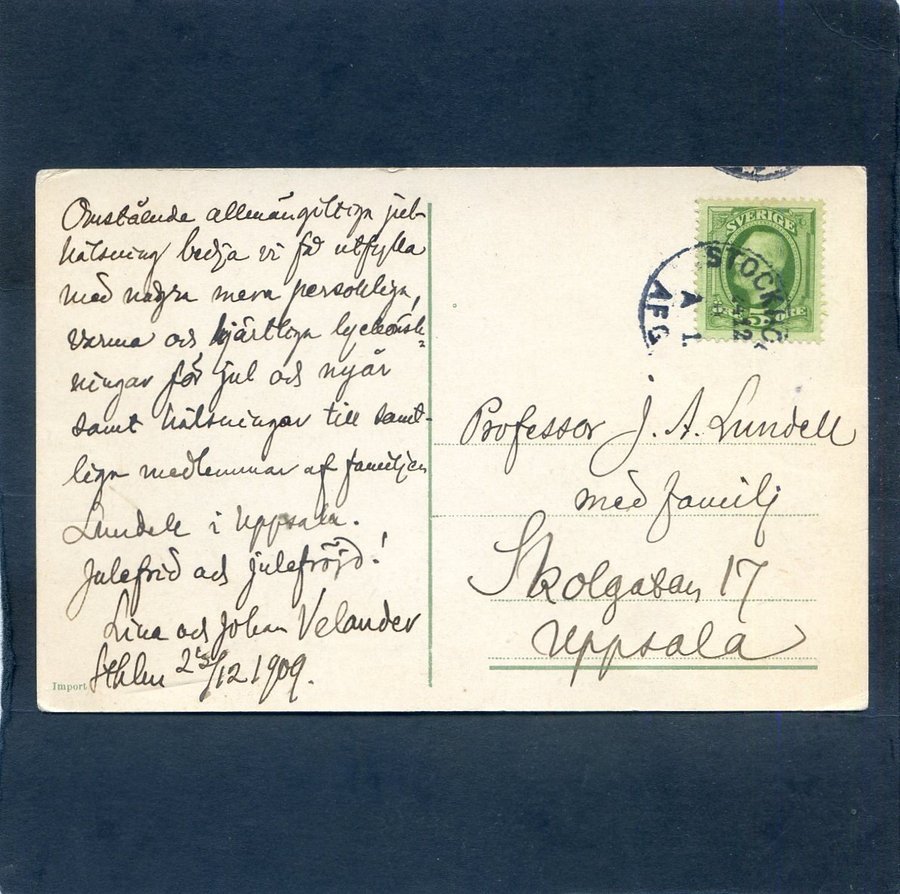 Omstående allmängiltiga jul-
hälsning bedja vi få utfylla
med några mera personliga,
varma och hjärtliga lyckönsk-
ningar för jul och nyår
samt hälsningar till samt-
liga medlemmar af familjen
Lundell i Uppsala.
Julefrid och julefröjd!
Lina och Johan Velander
Sthlm 23/12 1909.
Import
SVERIGE
5 ÖRE
STOCKHOL
AFG
A 1.
Professor J. A. Lundell
med familj
Skolgatan 17
Uppsala